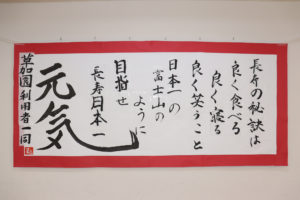 長寿の秘訣は
良く食べる
良く寝る
良く笑うこと
日本一の
富士山の
ように
目指せ
長寿日本一
元気
草加園利用者一同